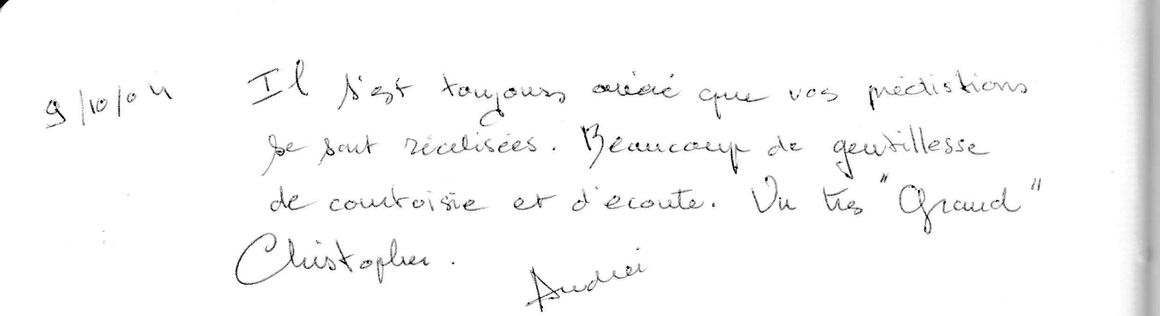 9/10/04 Il s'est toujours avéré que vos prédictions
se sont réalisées. Beaucoup de gentillesse
de courtoisie et d'écoute. Un très "Grand"
Christopher.